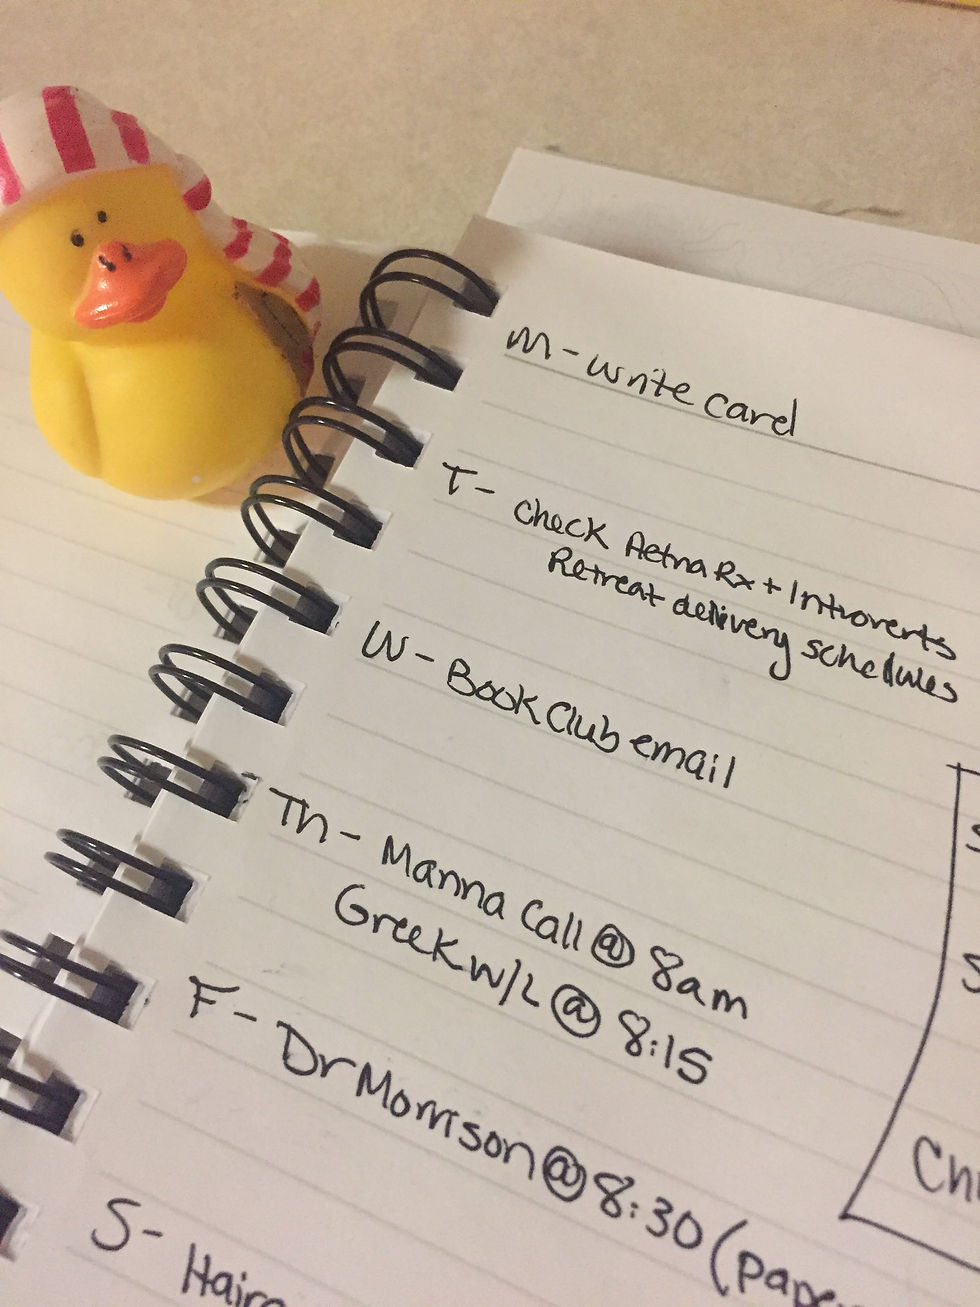 M - write card
T - Check Aetna Rx + Introverts
Retreat delivery schedules
W - Book Club email
Th - Manna Call @ 8am
Greek w/L @ 8:15
F - Dr Morrison @ 8:30
S -